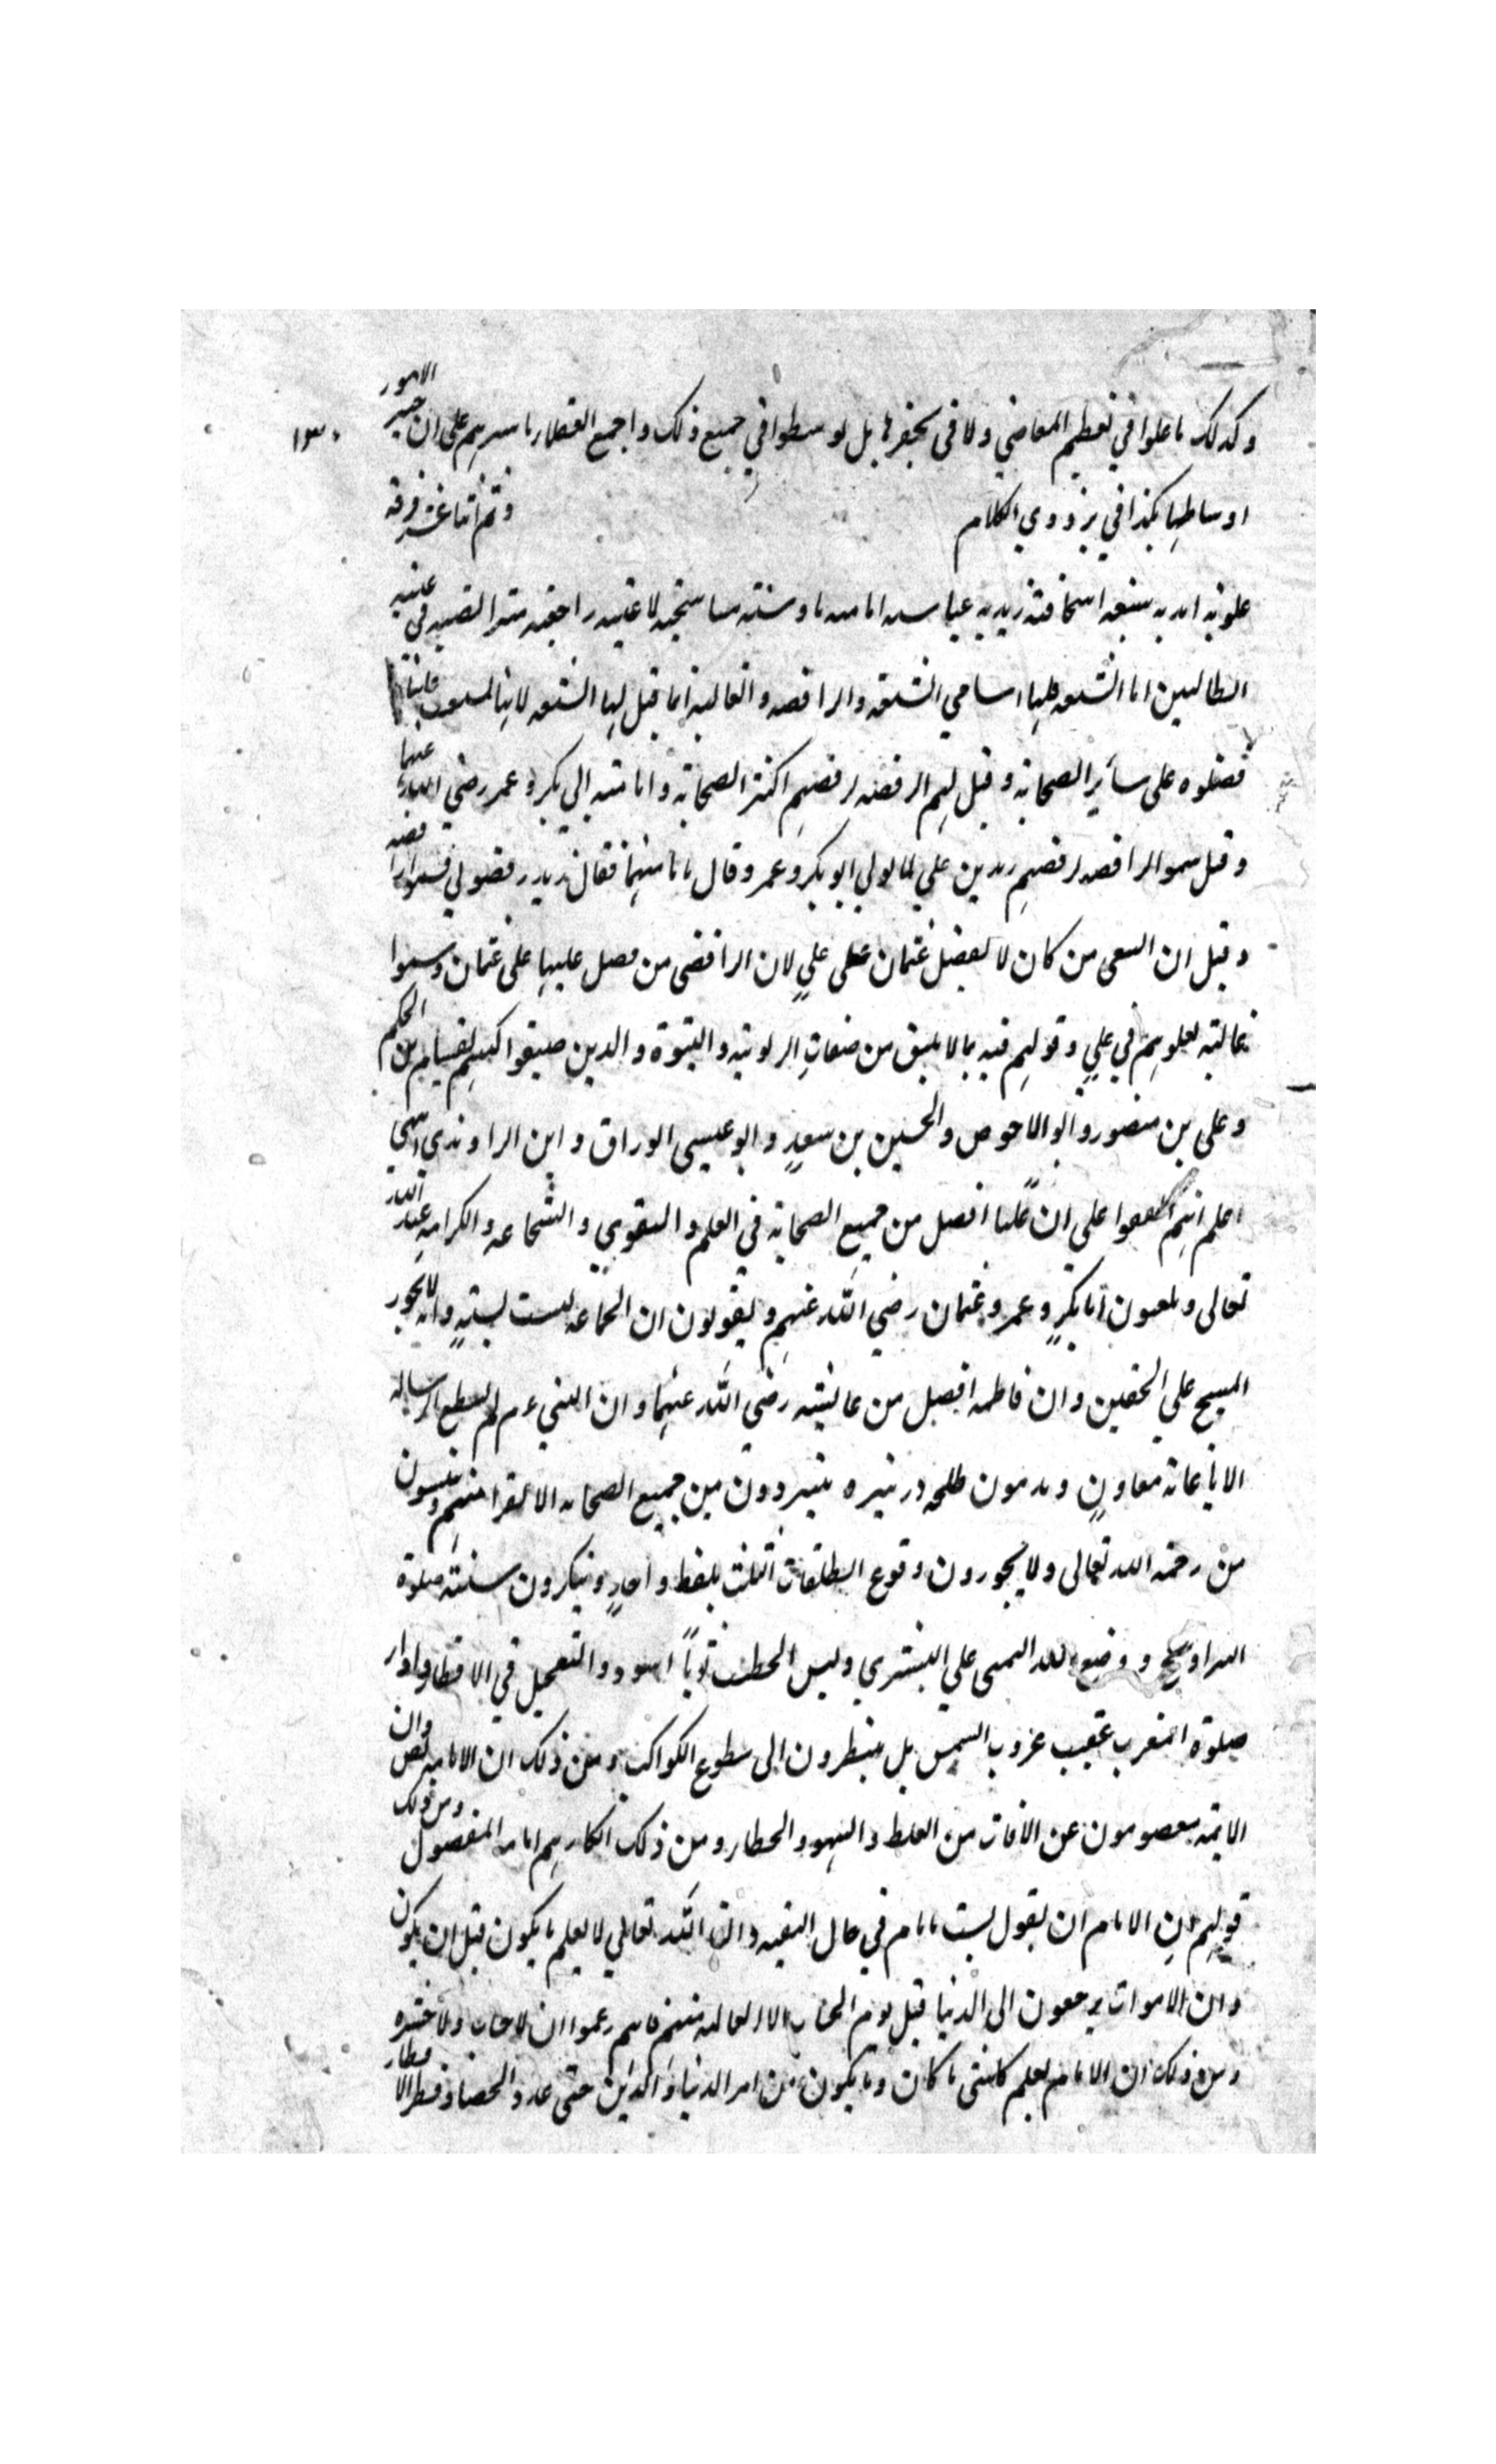 وكذلك ما غلوا في تعظيم المعاصي ولا في تحقيرها بل توسطوا في جميع ذلك واجمع العقلاء باسرهم على ان خير الامور
اوساطها كذا في بزدوي الكلام وهم اثنا عشر فرقة
علوية ابدية شيعية اسحاقية زيدية عباسية امامية ناوسية متناسخية لاعنية راجعية متراضية في
الطالبين اما الشيعة فلها اسامي الشيعة والرافضة والغالية انما قيل لها الشيعة لانها شايعت علينا
فضلوه على سائر الصحابة وقيل لهم الرفضة لرفضهم اكثر الصحابة وامامة ابي بكر وعمر رضي الله عنهما
وقيل سموا الرافضة لرفضهم زيد بن علي لما تولى ابو بكر وعمر وقال بامامتهما فقال زيد رفضوني فسموا رافضة
وقيل ان الشيعي من كان لا يفضل عثمان على علي لان الرافضي من فضل عليا على عثمان وسموا
غالية لغلوهم في علي وقولهم فيه بما لا يليق من صفات الربوبية والنبوة والذين صنفوا كتبهم هشام بن الحكم
وعلى بن منصور وابو الاحوص والحسين بن سعيد وابو عيسى الوراق وابن الراوندي
اعلم انهم اتفقوا على ان عليا افضل من جميع الصحابة في العلم والتقوى والشجاعة والكرامة عند الله
تعالى ويلعنون ابا بكر وعمر وعثمان رضي الله عنهم ويقولون ان الجماعة ليست بسنة وانه لا يجوز
المسح على الخفين وان فاطمة افضل من عائشة رضي الله عنهما وان النبي عم لم يستطع الرسالة
الا باعانة معاون ويذمون طلحة وزبيره يتبردون من جميع الصحابة الا نفرا منهم ويئسون
من رحمة الله تعالى ولا يجوزون وقوع الطلقات الثلث بلفظ واحد وينكرون سنية صلوة
التراويح ووضع اليد اليمنى على اليسرى ولبس الخطيب ثوبا اسود والتعجيل في الافطار واداء
صلوة المغرب عقيب غروب الشمس بل ينتظرون الى سطوع الكواكب ومن ذلك ان الامامة نص وان
الائمة معصومون عن الافات من الغلط والسهو والخطاء ومن ذلك انكارهم امامة المفضول ومن ذلك
قولهم ان الامام ان يقول لست بامام في حال التقية وان الله تعالى لا يعلم ما يكون قبل ان يكون
وان الاموات يرجعون الى الدنيا قبل يوم الحساب الا الغالية منهم فانهم زعموا ان لا حساب ولا حشر
ومن ذلك ان الامام يعلم كل شيء ما كان وما يكون من امر الدنيا والدين حتى عدد الحصا وقطر الامطار
١٣٠